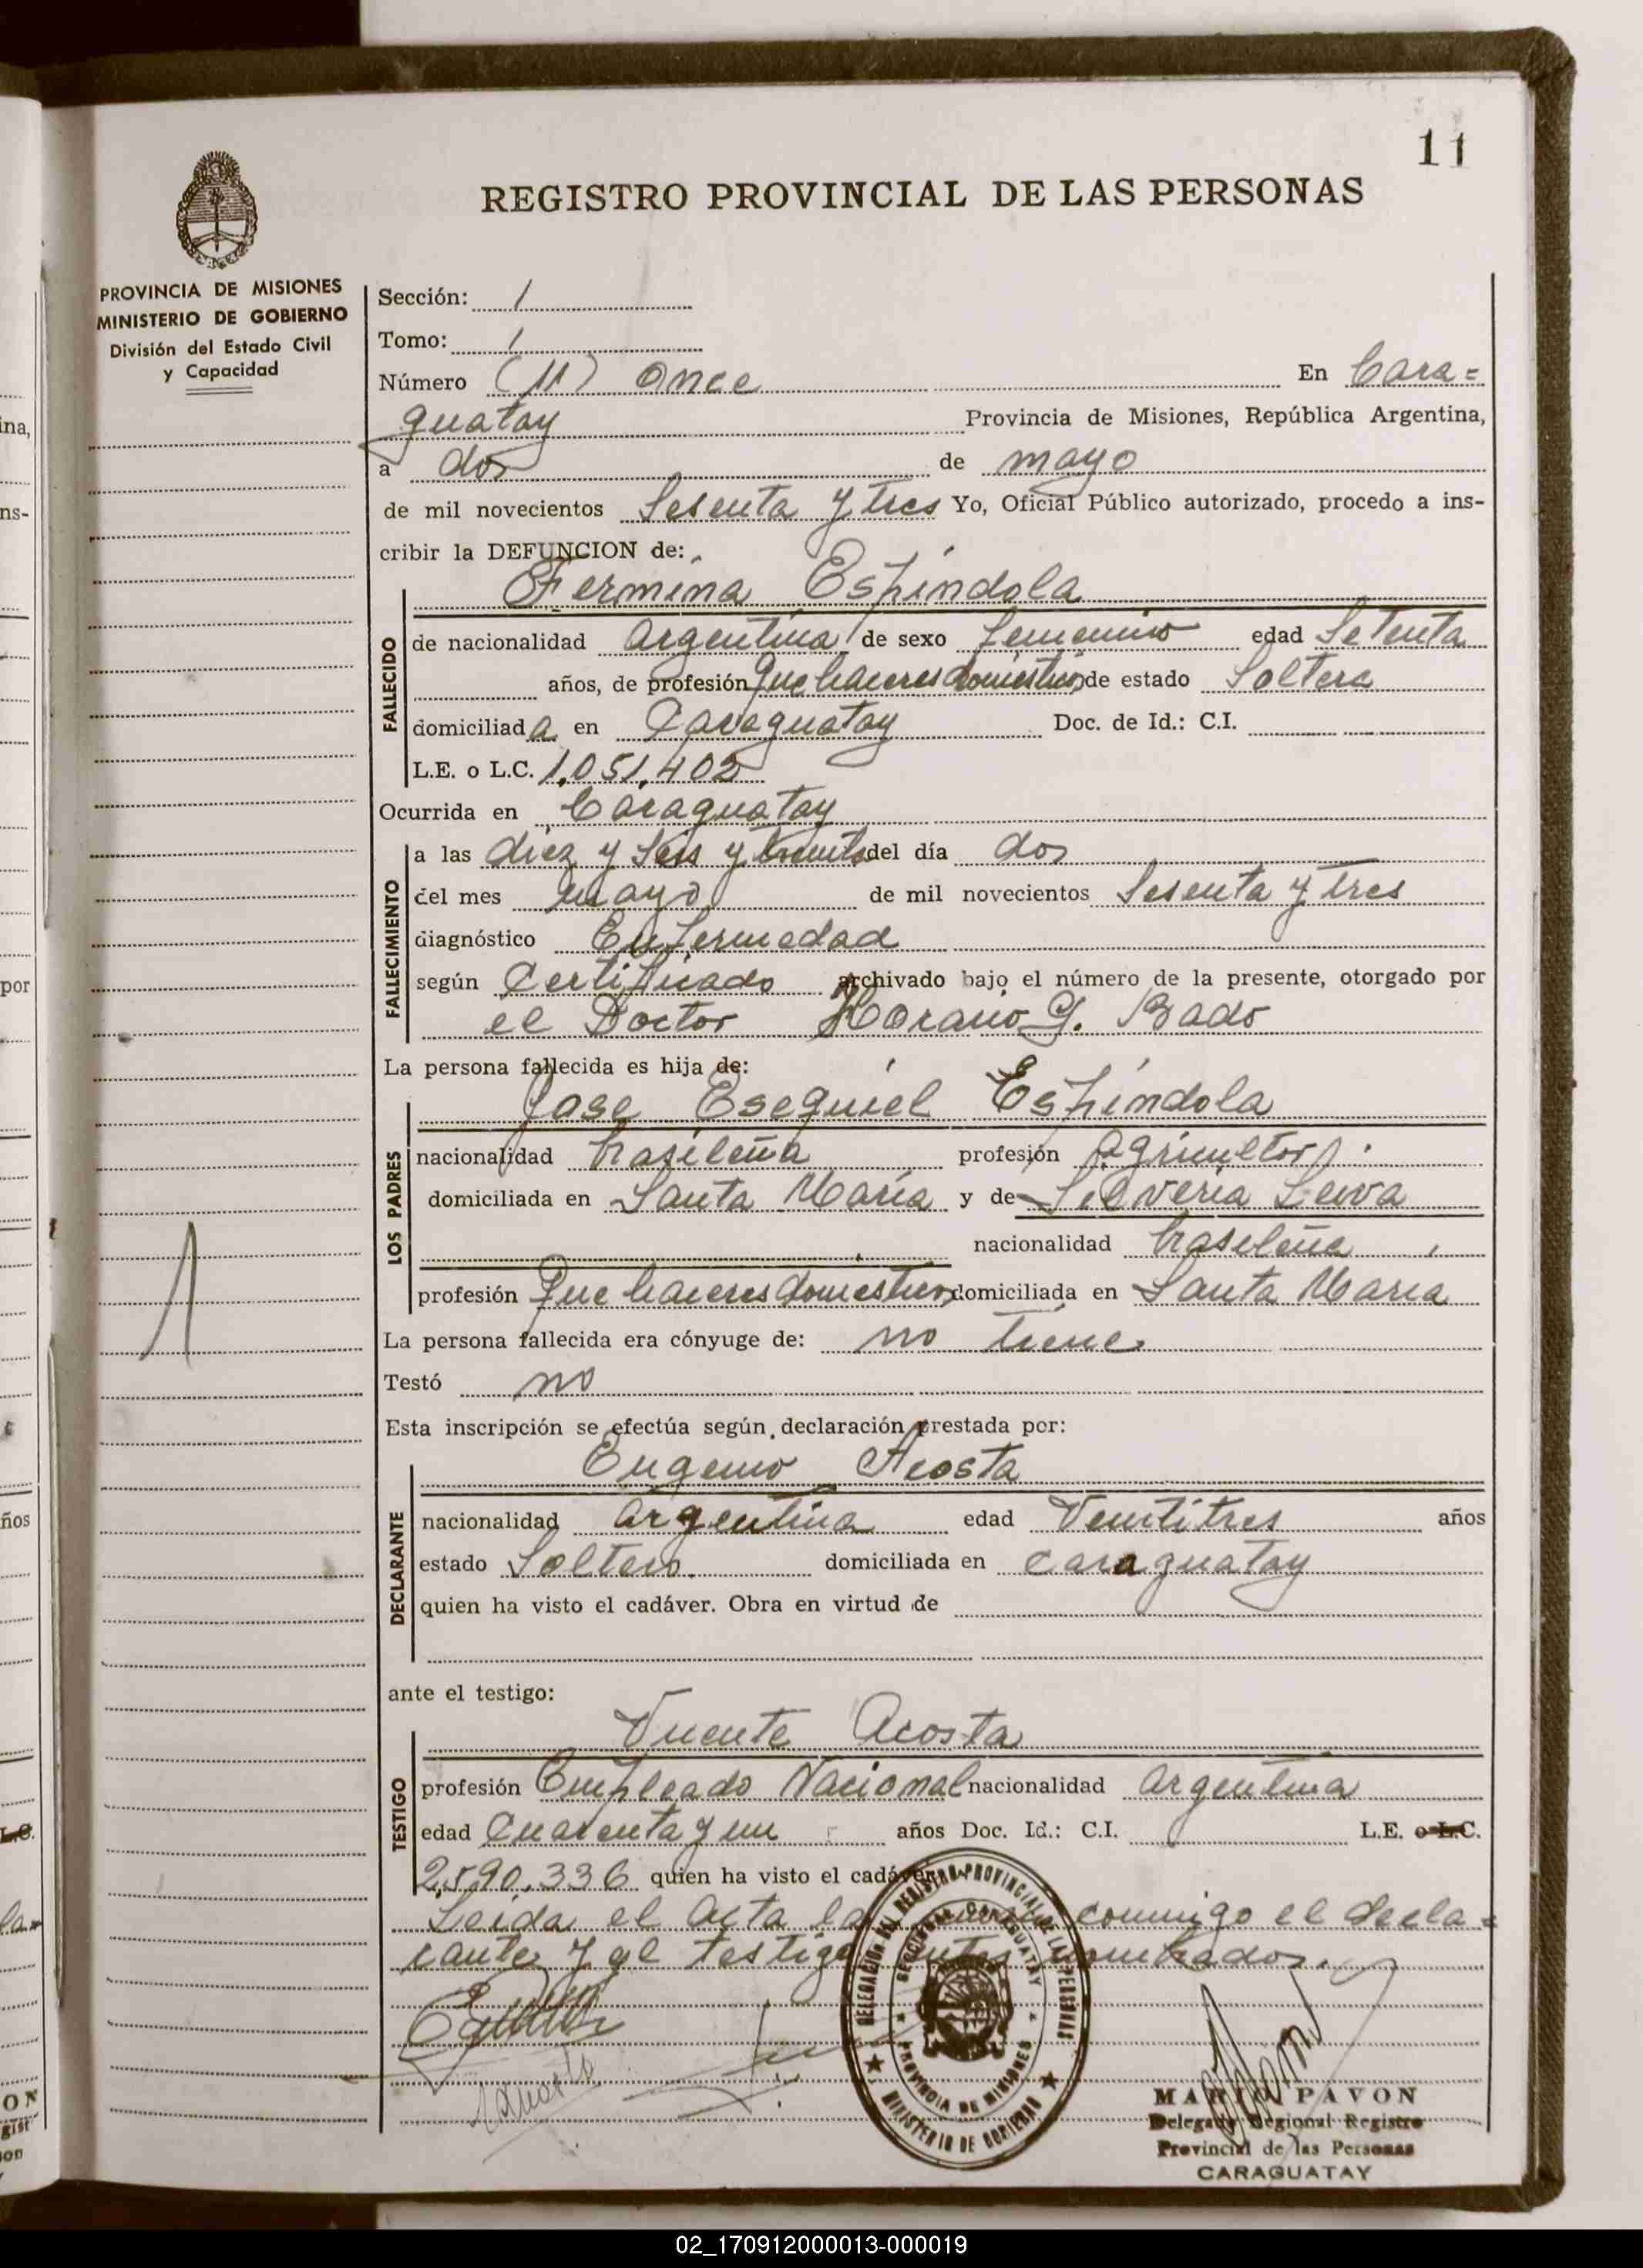 11
REGISTRO PROVINCIAL DE LAS PERSONAS
PROVINCIA DE MISIONES
MINISTERIO DE GOBIERNO
División del Estado Civil
y Capacidad
Sección: 1
Tomo: 1
Número (11) Once En Cara=
guatay Provincia de Misiones, República Argentina,
a dos de mayo
de mil novecientos Sesenta y tres Yo, Oficial Público autorizado, procedo a ins-
cribir la DEFUNCION de:
Fermina Espindola
FALLECIDO
de nacionalidad argentina de sexo femenino edad Setenta
años, de profesión Quehaceres domesticos de estado Soltera
domiciliada en Caraguatay Doc. de Id.: C.I.
L.E. o L.C. 1.051.402
Ocurrida en Caraguatay
FALLECIMIENTO
a las diez y seis y treinta del día dos
del mes mayo de mil novecientos Sesenta y tres
diagnóstico Enfermedad
según Certificado archivado bajo el número de la presente, otorgado por
el Doctor Horacio G. Bado
La persona fallecida es hija de:
Jose Esequiel Espindola
LOS PADRES
nacionalidad brasileña profesión agricultor
domiciliada en Santa Maria y de Silveria Leiva
nacionalidad brasileña
profesión Quehaceres domesticos domiciliada en Santa Maria
La persona fallecida era cónyuge de: no tiene
Testó no
Esta inscripción se efectúa según declaración prestada por:
Eugenio Acosta
DECLARANTE
nacionalidad argentina edad Veintitres años
estado Soltero. domiciliada en Caraguatay
quien ha visto el cadáver. Obra en virtud de
ante el testigo:
Vicente Acosta
TESTIGO
profesión Empleado Nacional nacionalidad argentina
edad Cuarenta y un años Doc. Id.: C.I. L.E. o L.C.
2.590.336 quien ha visto el cadáver.
Leida el acta la conmigo el decla=
rante y el testigo antes nombrados.
DELEGACION DEL REGISTRO PROVINCIAL DE LAS PERSONAS
CARAGUATAY
PROVINCIA DE MISIONES
MINISTERIO DE GOBIERNO
MARIO PAVON
Delegado Regional Registro
Provincial de las Personas
CARAGUATAY
ina,
ns-
por
ños
L.C.
la=
ON
gistr
son
02_170912000013-000019